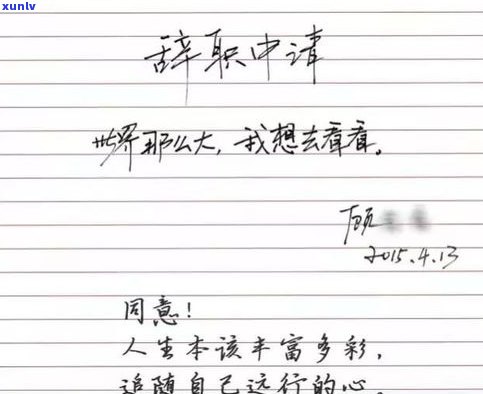 xunlv
辞职申请
世界那么大，我想去看看。
顾
2015.4.13
同意！
人生本该丰富多彩，
追随自己远行的心。